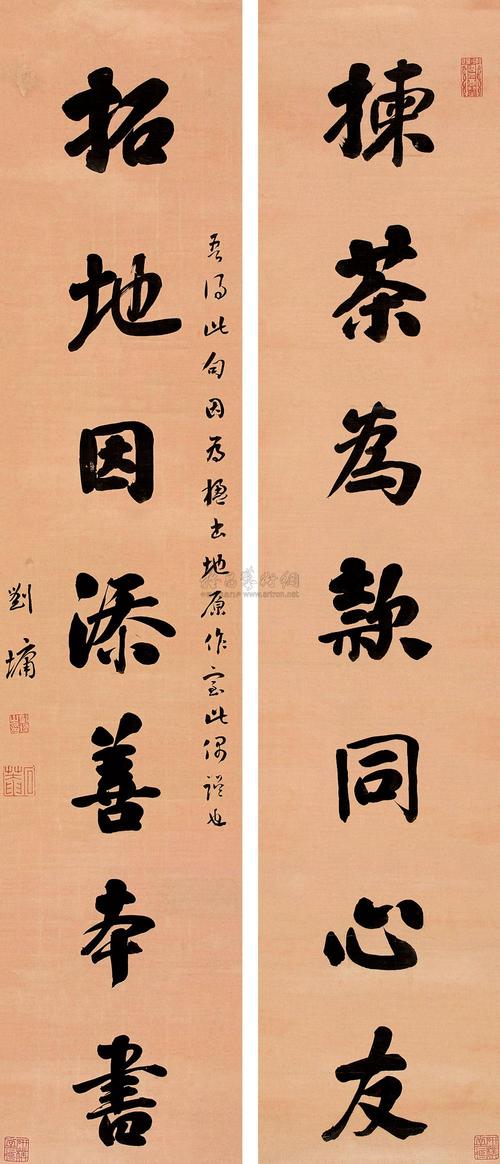 揀茶為款同心友
吾得此句因為楹書地原作室此偶誤也
拓地因添善本書
劉墉
雅昌藝術網
www.artron.net